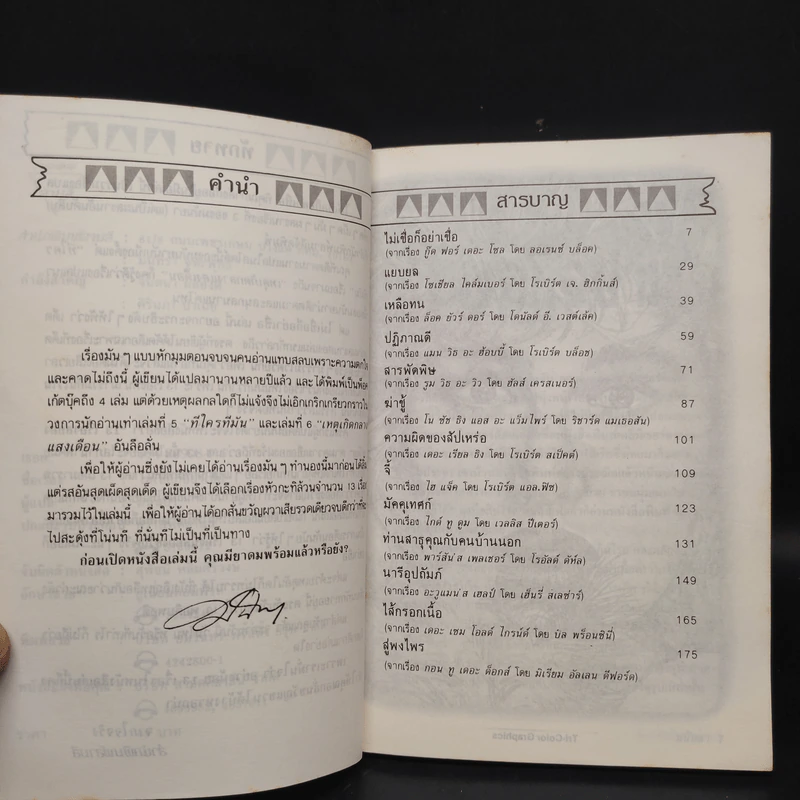 คำนำ
เรื่องมัน ๆ แบบหักมุมตอนจบจนคนอ่านแทบสลบเพราะความตกใจ
และคาดไม่ถึงนี้ ผู้เขียนได้แปลมานานหลายปีแล้ว และได้พิมพ์เป็นพ็อค
เก้ตบุ๊คถึง 4 เล่ม แต่ด้วยเหตุผลกลใดก็ไม่แจ้งจึงไม่เอิกเกริกเกรียวกราวใน
วงการนักอ่านเท่าเล่มที่ 5 "ทีใครทีมัน" และเล่มที่ 6 "เหตุเกิดกลาง
แสงเดือน" อันลือลั่น
เพื่อให้ผู้อ่านซึ่งยังไม่เคยได้อ่านเรื่องมัน ๆ ทำนองนี้มาก่อนได้ลิ้ม
แต่รสอันสุดเผ็ดสุดเด็ด ผู้เขียนจึงได้เลือกเรื่องหัวกะทิล้วนจำนวน 13 เรื่อง
มารวมไว้ในเล่มนี้ เพื่อให้ผู้อ่านได้อกสั่นขวัญผวาเสียรวดเดียวจบดีกว่าที่จะ
ไปสะดุ้งที่โน่นที ที่นั่นทีไม่เป็นที่เป็นทาง
ก่อนเปิดหนังสือเล่มนี้ คุณมียาดมพร้อมแล้วหรือยัง?
สารบาญ
ไม่เชื่อก็อย่าเชื่อ 7
(จากเรื่อง กู๊ด ฟอร์ เดอะ โซล โดย ลอเรนซ์ บล็อค)
แยบยล 29
(จากเรื่อง โซเชียล ไคล์มเบอร์ โดย โรเบิร์ต เจ. ฮิกกิ้นส์)
เหลือทน 39
(จากเรื่อง ล็อค ยัวร์ ดอร์ โดย โดนัลด์ อี. เวสต์เล้ค)
ปฏิภาณดี 59
(จากเรื่อง แมน วิธ อะ ฮ้อบบี้ โดย โรเบิร์ต บล็อช)
สารพัดพิษ 71
(จากเรื่อง รูม วิธ อะ วิว โดย ฮัลส์ เครสเนอร์)
ฆ่าชู้ 87
(จากเรื่อง โน ซัช ธิง แอส อะ แว็มไพร์ โดย ริชาร์ด แมเธอสัน)
ความผิดของสัปเหร่อ 101
(จากเรื่อง เดอะ เรียล ธิง โดย โรเบิร์ต สเป็คต์)
จี้ 109
(จากเรื่อง ไฮ แจ็ค โดย โรเบิร์ต แอล.ฟิช)
มัคคุเทศก์ 123
(จากเรื่อง ไกด์ ทู ดูม โดย เวลลิส ปีเตอร์)
ท่านสาธุคุณกับคนบ้านนอก 131
(จากเรื่อง พาร์สัน'ส เพลเชอร์ โดย โรอัลด์ ดัห์ล)
นารีอุปถัมภ์ 149
(จากเรื่อง อะวูแมน'ส เฮลป์ โดย เฮ็นรี่ สเลซ่าร์)
ไส้กรอกเนื้อ 165
(จากเรื่อง เดอะ เซม โอลด์ ไกรนด์ โดย บิล พร็อนซินี่)
สู่พงไพร 175
(จากเรื่อง กอน ทู เดอะ ด็อกส์ โดย มิเรียม อัลเลน ดีฟอร์ด)